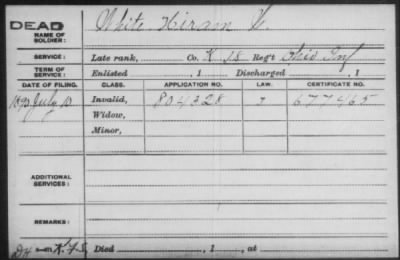 DEAD
NAME OF SOLDIER: White Hiram
SERVICE: Late rank, Co. K 18 Reg't Ohio Inf
TERM OF SERVICE: Enlisted , 1 Discharged , 1
DATE OF FILING. CLASS. APPLICATION NO. LAW. CERTIFICATE NO.
1890 July 10 Invalid, 804328 677465
Widow,
Minor,
ADDITIONAL SERVICES:
REMARKS:
Died , 1 , at